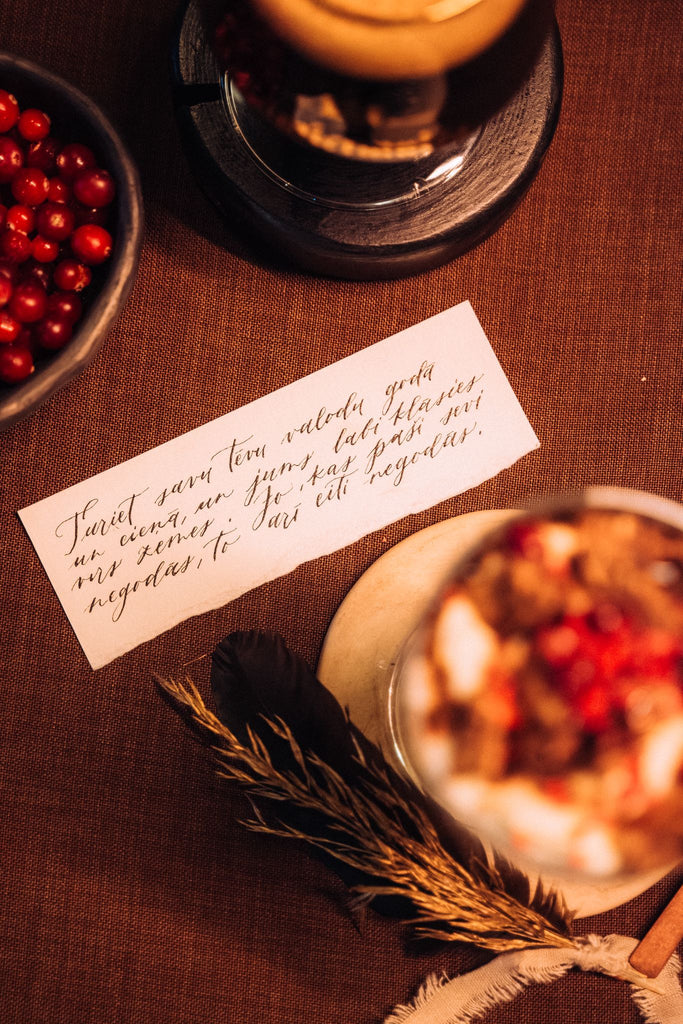 Turiet savu tēvu valodu godā
un cieņā, un jums labi klāsies
virs zemes. Jo, kas paši sevi
negodās, to arī citi negodās.